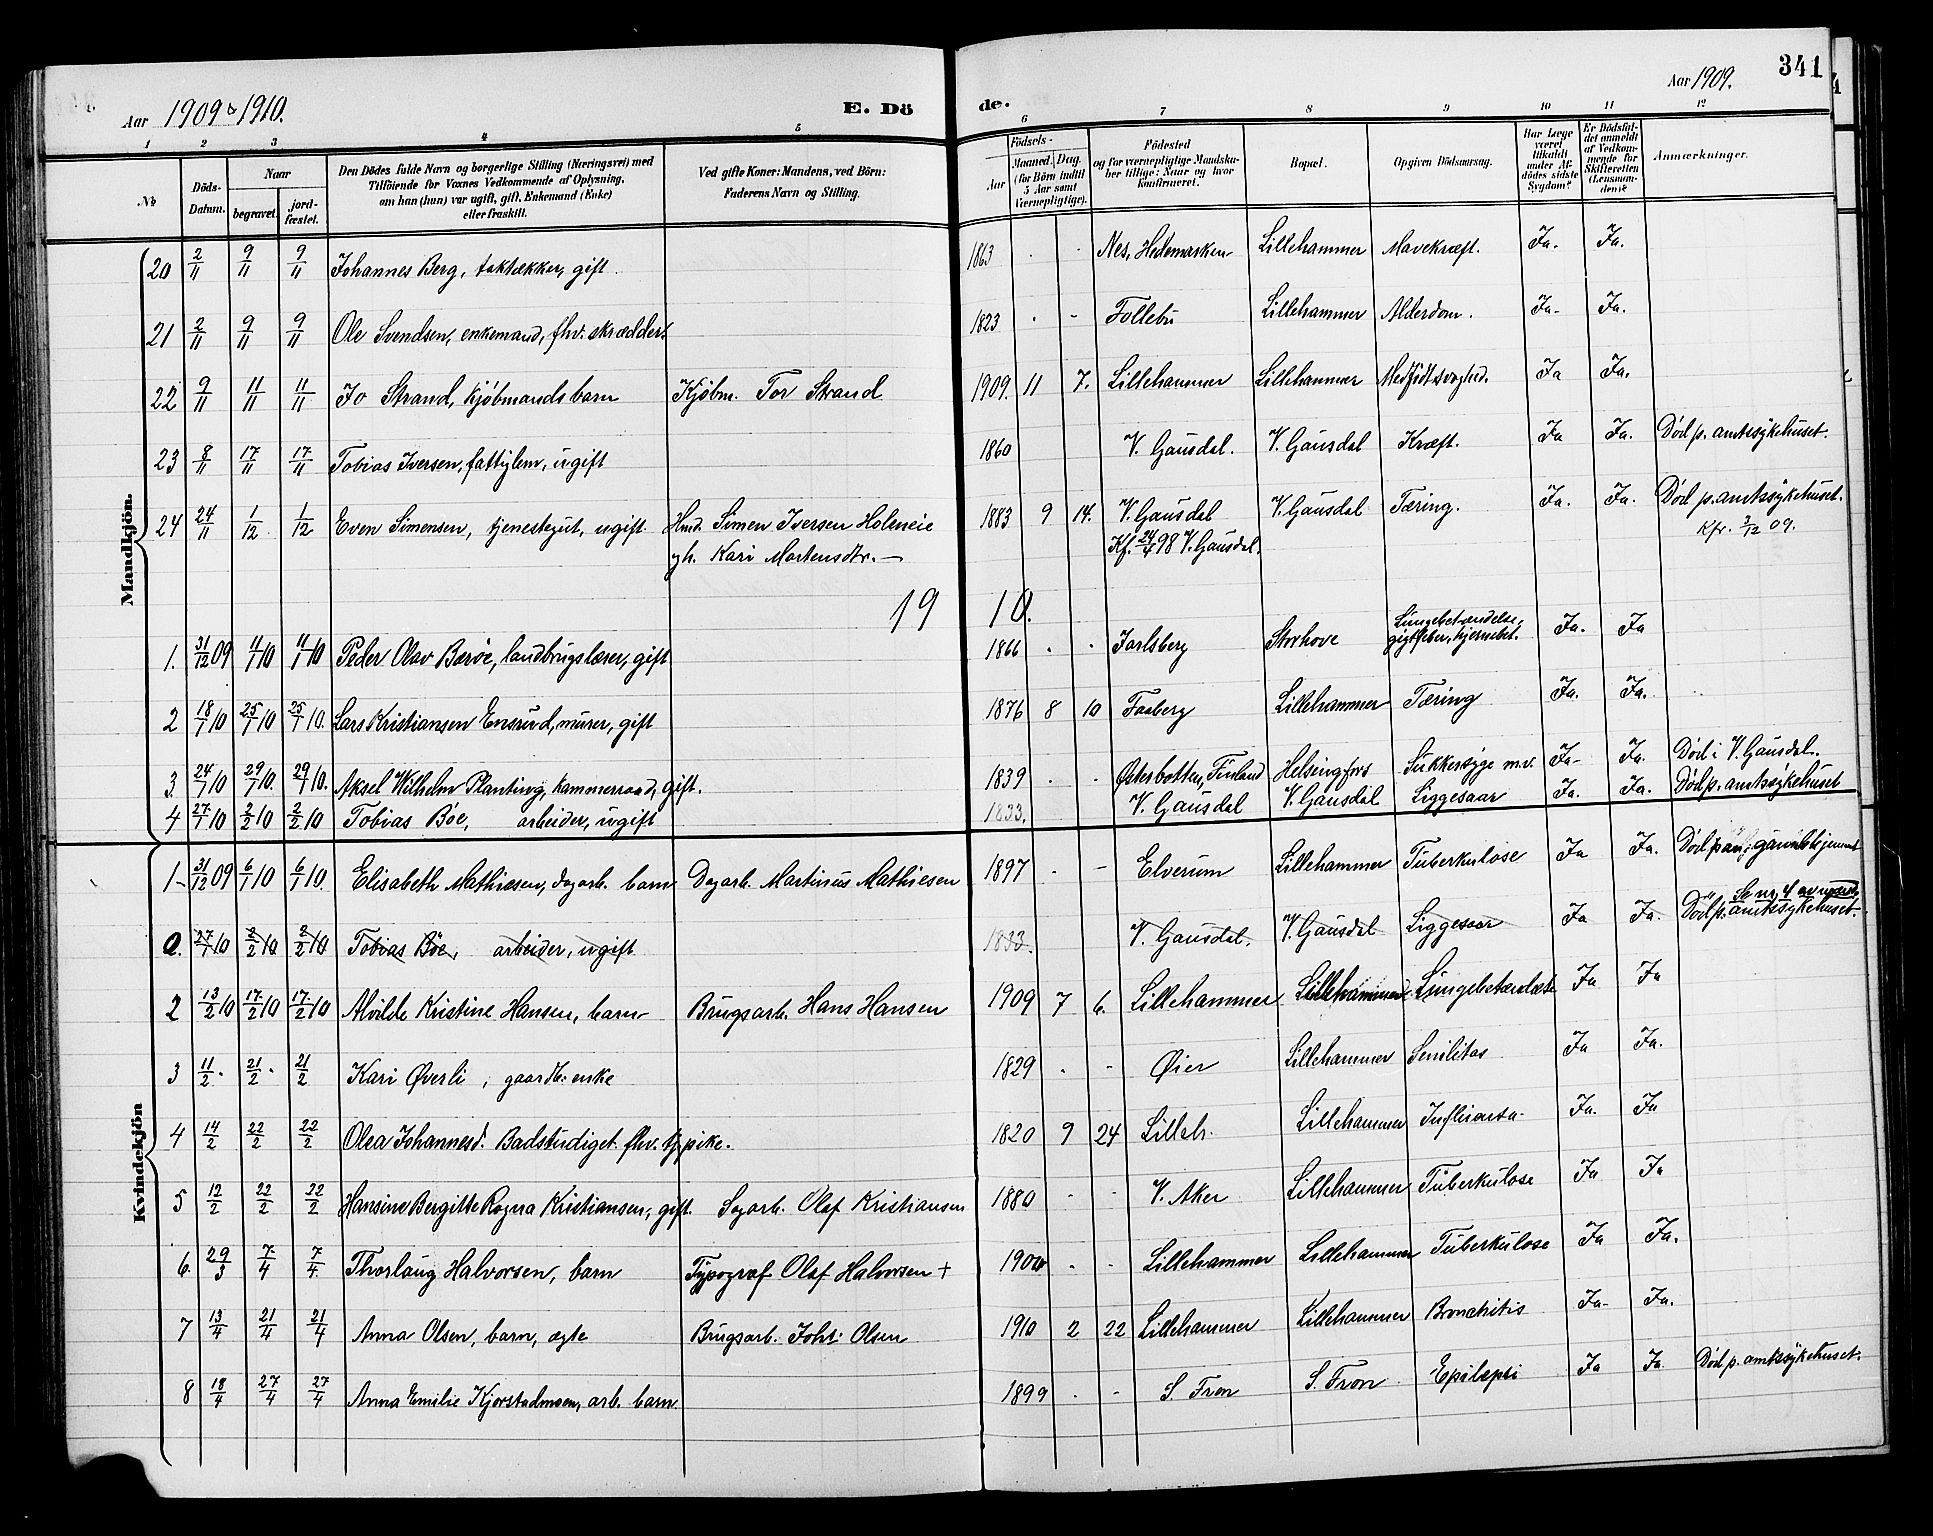 Aar 1909 & 1910. E. Dö de. Aar 1909. 341
1 2 3 4 5 6 7 8 9 10 11 12
No
Döds-Datum.
Naar
begravet. jord-fæstet.
Den Dödes fulde Navn og borgerlige Stilling (Næringsvei) med
Tilföiende for Voxnes Vedkommende af Oplysning,
om han (hun) var ugift, gift, Enkemand (Enke)
eller fraskilt.
Ved gifte Koner: Mandens, ved Börn:
Faderens Navn og Stilling.
Födsels-
Aar Maaned. Dag.
(for Börn indtil
5 Aar samt
Værnepligtige).
Födested
og for værnepligtige Mandska-
ber tillige: Naar og hvor
konfirmeret.
Bopæl.
Opgiven Dödsaarsag.
Har Læge
været
tilkaldt
under Af-
dödes sidste
Sygdom?
Er Dödsfal-
det anmeldt
af Vedkom-
mende for
Skifteretten
(Lensman-
den)?
Anmærkninger.
Mandkjön.
20 2/11 9/11 9/11 Johannes Berg, taktækker, gift. 1863 . . Nes, Hedemarken Lillehammer Mavekræft. Ja. Ja.
21 2/11 9/11 9/11 Ole Svendsen, enkemand, fhv. skrædder. 1823 . - Follebu Lillehammer Alderdom. Ja. Ja.
22 9/11 11/11 11/11 Jo Strand, kjøbmandsbarn Kjøbm. Tor Strand 1909. 11 7. Lillehammer Lillehammer Medfødt svaghed. Ja Ja.
23 8/11 17/11 17/11 Tobias Iversen, fattiglem, ugift 1860 V. Gausdal. V. Gausdal Kræft. Ja Ja. Død p. amtssykehuset.
24 24/11 1/12 1/12 Even Simensen, tjenestegut, ugift Hmd. Simen Iversen Holeneie 1883 9 14. V. Gausdal V. Gausdal Tæring. Ja. Ja. Død p. amtssykehuset.
gh. Kari Mortensdtr. — Kf. 24/4 98 V. Gausdal. Kfr. 3/12 09.
19 10.
1. 31/12 09 4/1 10 4/1 10 Peder Olav Bærøe, landbrugslærer, gift 1866 . . Jarlsberg Storhove Lungebetændelse,
gigtfeber, hjernebet. Ja. Ja
2 18/1 10 25/1 10 25/1 10. Lars Kristiansen Ensrud, murer, gift 1876 8 10 Faaberg Lillehammer Tæring Ja. Ja.
3 24/1 10 29/1 10. 29/1 10. Aksel Wilhelm Planting, kammerraad, gift. 1839 . . Østerbotten, Finland Helsingfors Sukkersyge m.v. Ja- Ja. Død i V. Gausdal.
4 27/1 10 2/2 10 2/2 10 Tobias Bøe, arbeider, ugift 1833. V. Gausdal V. Gausdal Liggesaar Ja. Ja. Død p. amtssykehuset
Kvindekjön
1- 31/12 09 6/1 10 6/1 10. Elisabeth Mathiesen, dagarb. barn Dagarb. Martinus Mathiesen 1897 . - Elverum Lillehammer Tuberkulose Ja Ja. Død p.
Se nr. 4 av
0. 27/1 10 2/2 10 2/2 10 Tobias Bøe, arbeider, ugift 1833. V. Gausdal. V. Gausdal Liggesaar Ja Ja. Død p. amtssykehuset.
2 13/2 10 17/2 10 17/2 10 Alvilde Kristine Hansen, barn Brugsarb. Hans Hansen 1909 7 6. Lillehammer Lillehammer Lungebetændelse Ja Ja
3 11/2 . 21/2 . 21/2 Kari Øverli, gaardb. enke 1829 . - Øier Lillehammer Senilitas Ja Ja.
4 14/2 22/2 22/2 Olea Johannesd. Badstudiget. fhv. tj pike. 1820 9 24 Lilleh. Lillehammer Influensa Ja. Ja
5 12/2 22/2 22/2 Hansine Bergitte Ragna Kristiansen, gift. Sagarb. Olaf Kristiansen 1880 - - V. Aker Lillehammer Tuberkulose Ja Ja
6. 29/3 7/4 7/4. Thorlaug Halvorsen, barn Typograf Olaf Halvorsen + 1900 . - Lillehammer Lillehammer Tuberkulose Ja Ja.
7 13/4 21/4 21/4 Anna Olsen, barn, ægte Brugsarb. Joh. Olsen 1910 2 22 Lillehammer Lillehammer Bronchitis Ja- Ja.
8 18/4 27/4 27/4 Anna Emilie Kjorstadmoen, arb. barn. 1899 . - S. Fron S. Fron Epilepsi Ja Ja Død p. amtssykehuset.